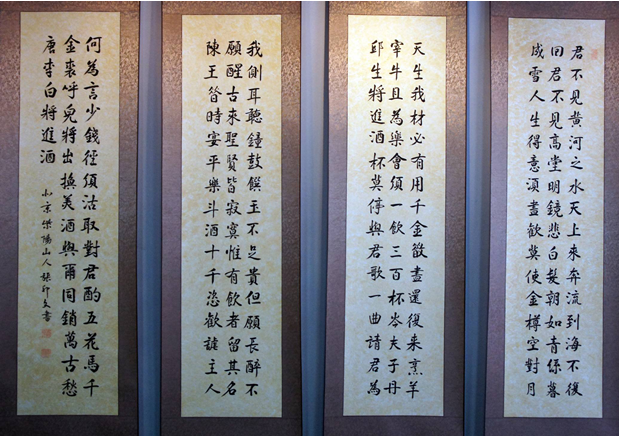 君不見黄河之水天上来奔流到海不復
回君不見高堂明鏡悲白髮朝如青絲暮
成雪人生得意須盡歡莫使金樽空對月
天生我材必有用千金散盡還復来烹羊
宰牛且為樂會須一飲三百杯岑夫子丹
邱生將進酒杯莫停與君歌一曲請君為
我側耳聽鐘鼓饌玉不足貴但願長醉不
願醒古来聖賢皆寂寞惟有飲者留其名
陳王昔時宴平樂斗酒十千恣歡謔主人
何為言少錢徑須沽取對君酌五花馬千
金裘呼兒將出換美酒與爾同銷萬古愁
唐李白將進酒
京陽山人張印文書